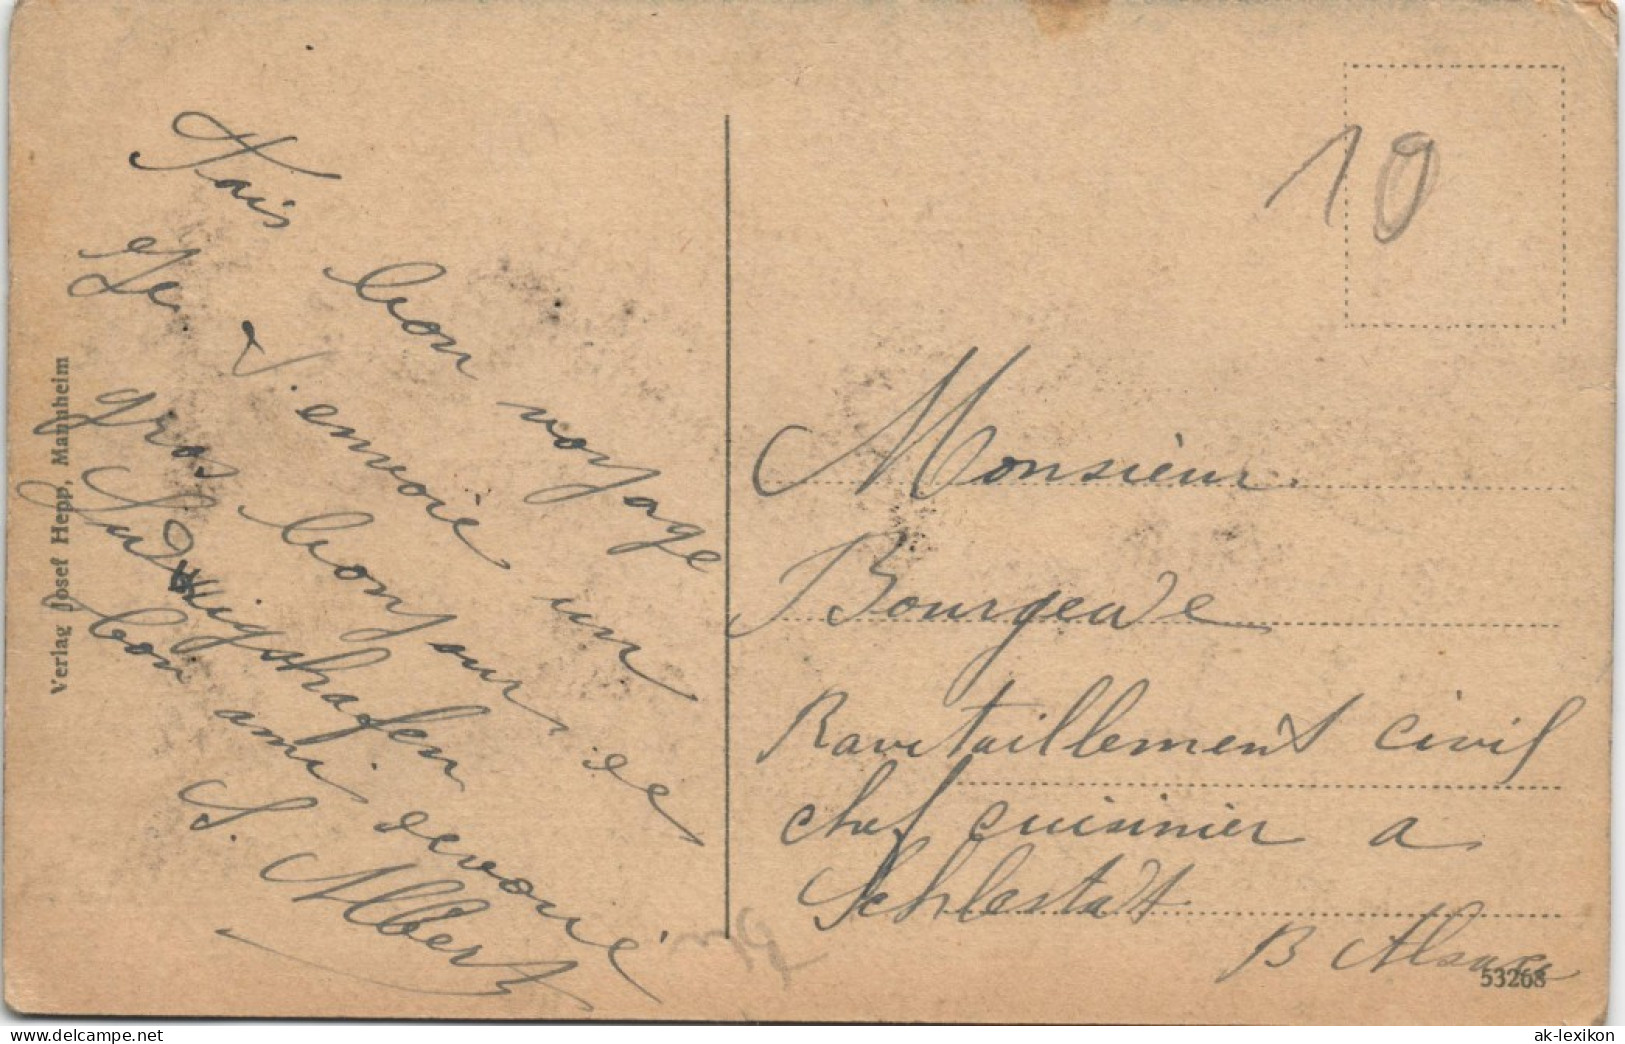 Fais bon voyage
Je t'envoie un
gros bonjour de
Ludwigshafen de
bon ami devoué
S. Albert
Verlag Josef Hepp, Mannheim
10
Monsieur
Bourgeade
Ravitaillement civil
chef cuisinier a
Schlestadt
B Alsace
53268
delcampe.net
ak-lexikon